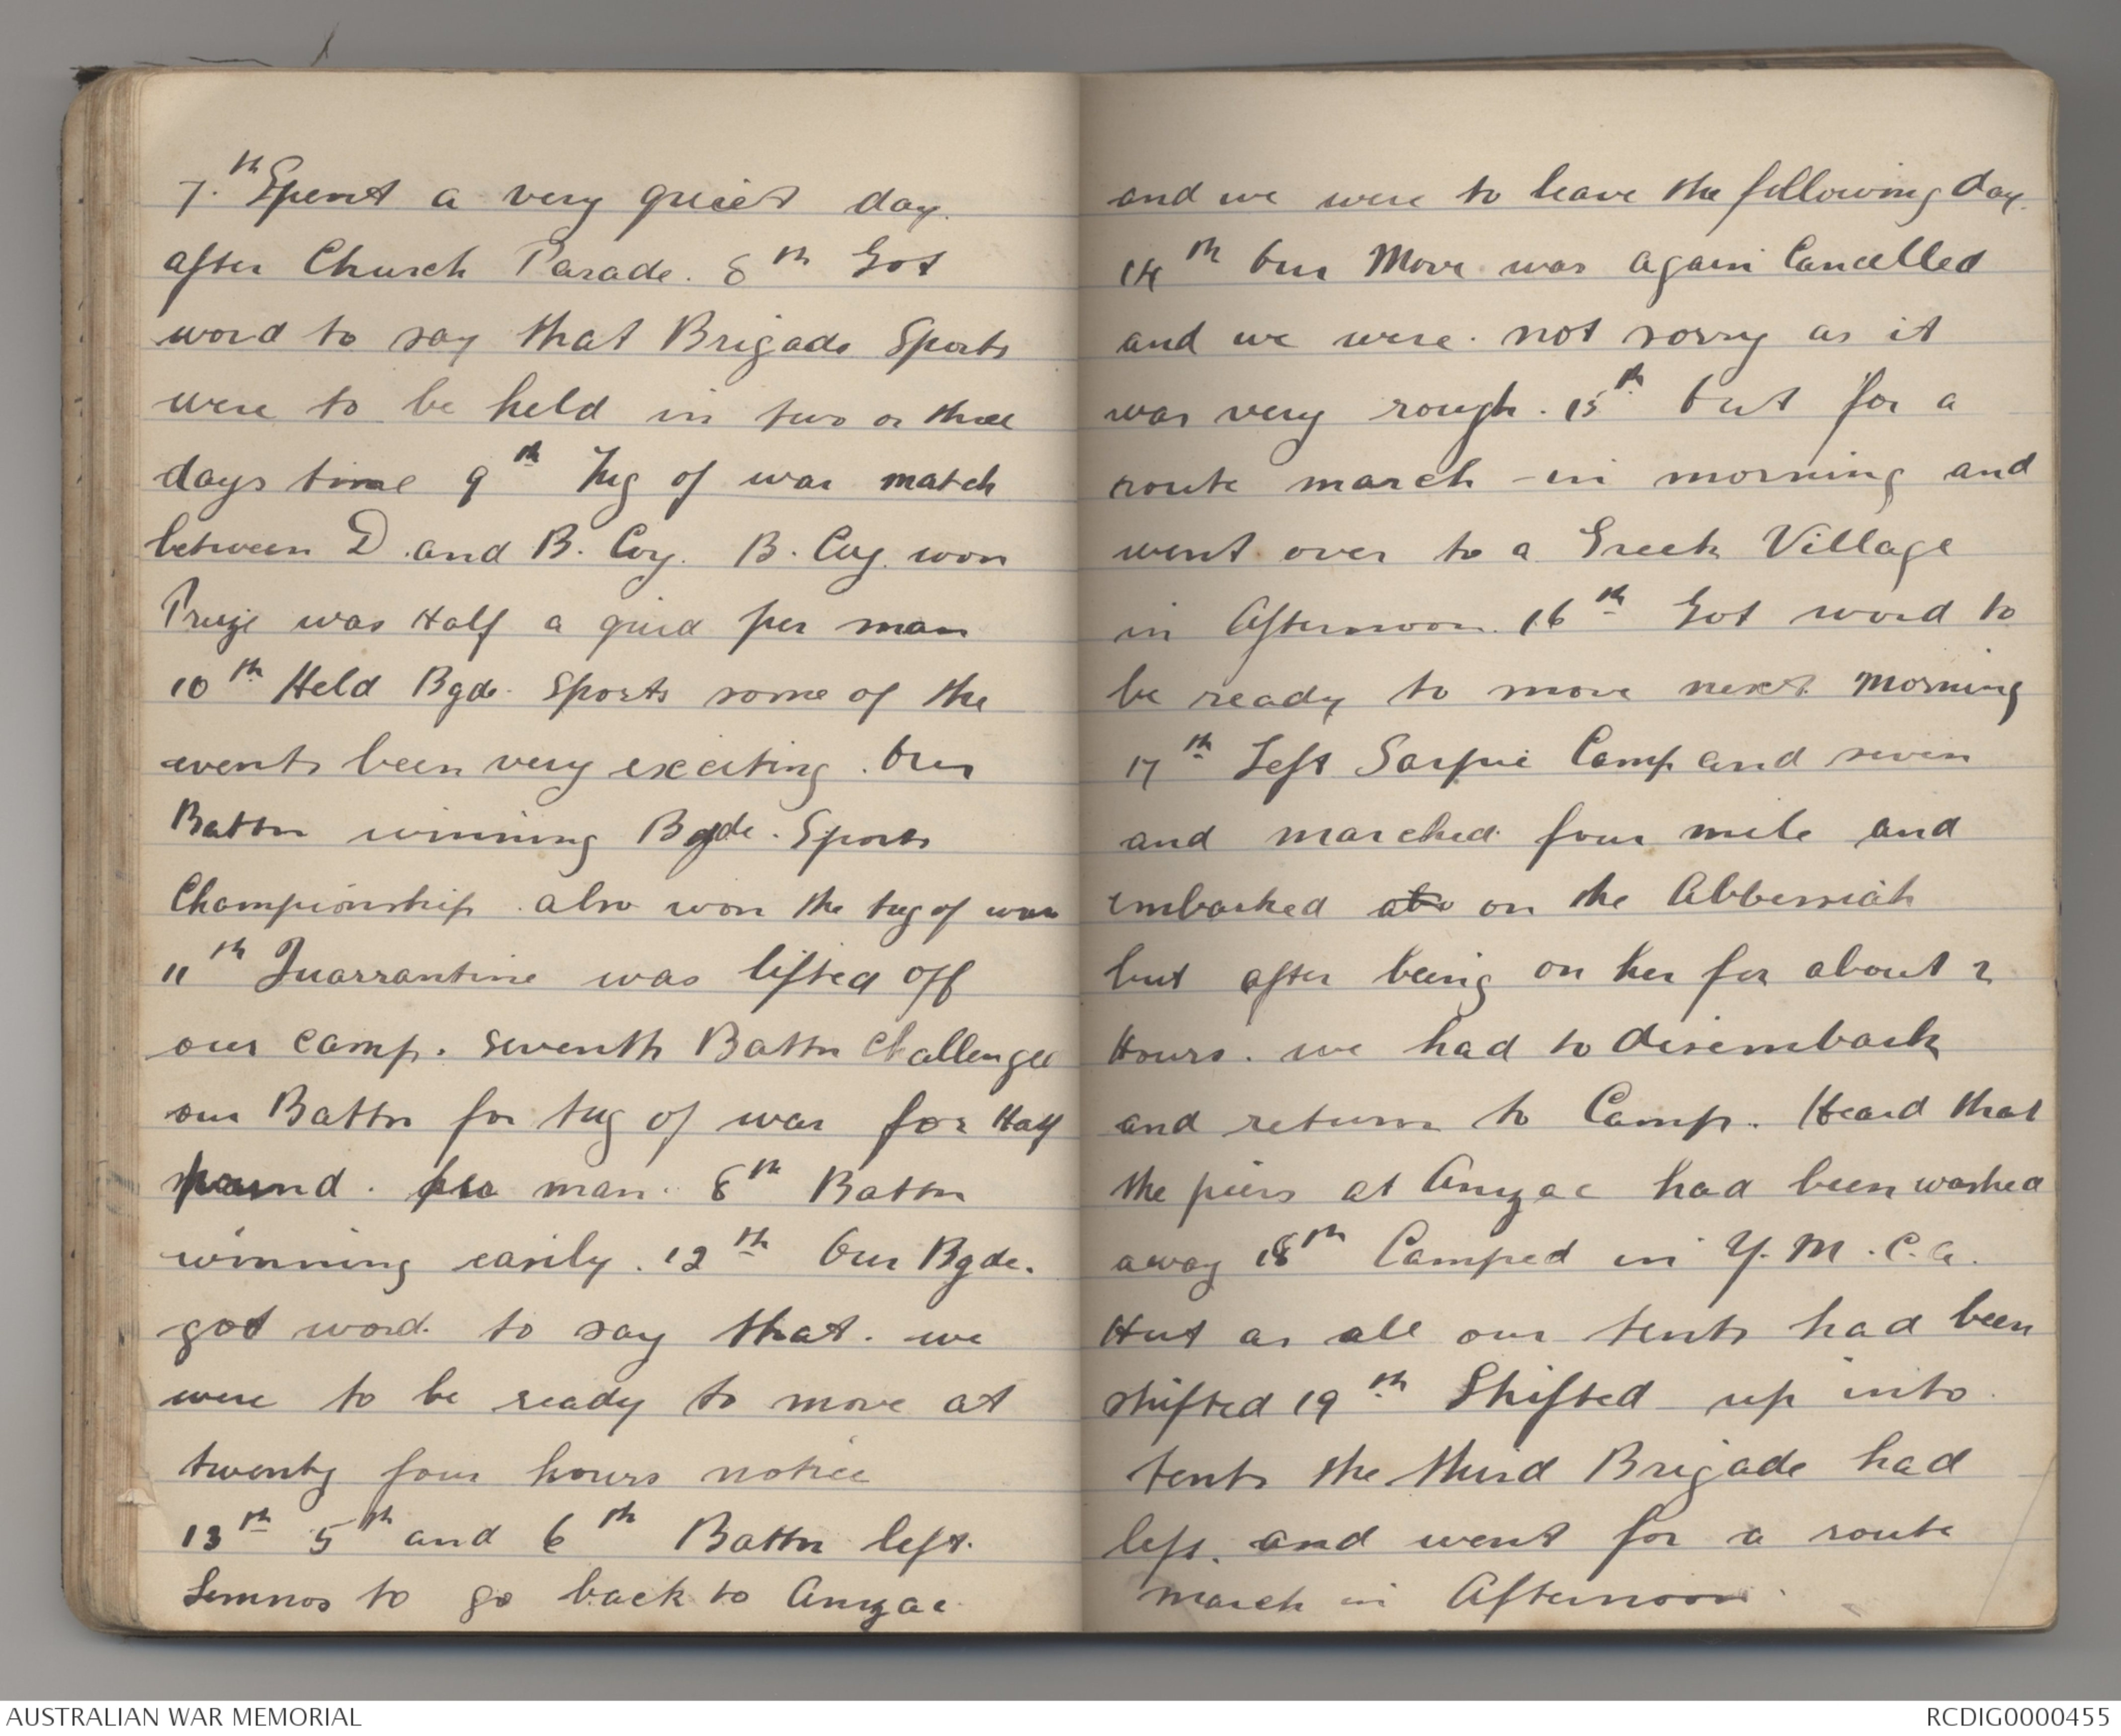 7.th Spent a very quiet day.
after Church Parade. 8th Got
word to say that Brigade Sports
were to be held in two or three
days time 9th Tug of war match
between D. and B. Coy. B. Coy. won
Prize was Half a quid per man
10th Held Bgde. Sports some of the
events been very exciting. Our
Battn winning Bgde. Sports
Championship. also won the tug of war
11th Quarrantine was lifted off
our camp. Seventh Battn Challenged
our Battn for tug of war for Half
pound. per man. 8th Battn
winning easily. 12th Our Bgde.
got word. to say that. we
were to be ready to move at
twenty four hours notice
13th 5th and 6th Battn left.
Lemnos to go back to Anzac
and we were to leave the following day.
14th Our Move was again Cancelled
and we were. not sorry as it
was very rough. 15th Out for a
route march - in morning and
went over to a Greek Village
in Afternoon. 16th Got word to
be ready to move next. morning
17th Left Sarpie Camp and seven
and marched four mile and
embarked on the Abbessiah
but after being on her for about 2
Hours. we had to disembark
and return to Camp. Heard that
the piers at Anzac had been washed
away 18th Camped in Y.M.C.A.
Hut as all our tents had been
shifted 19th Shifted up into
tents the third Brigade had
left. and went for a route
march in Afternoon.
AUSTRALIAN WAR MEMORIAL
RCDIG0000455